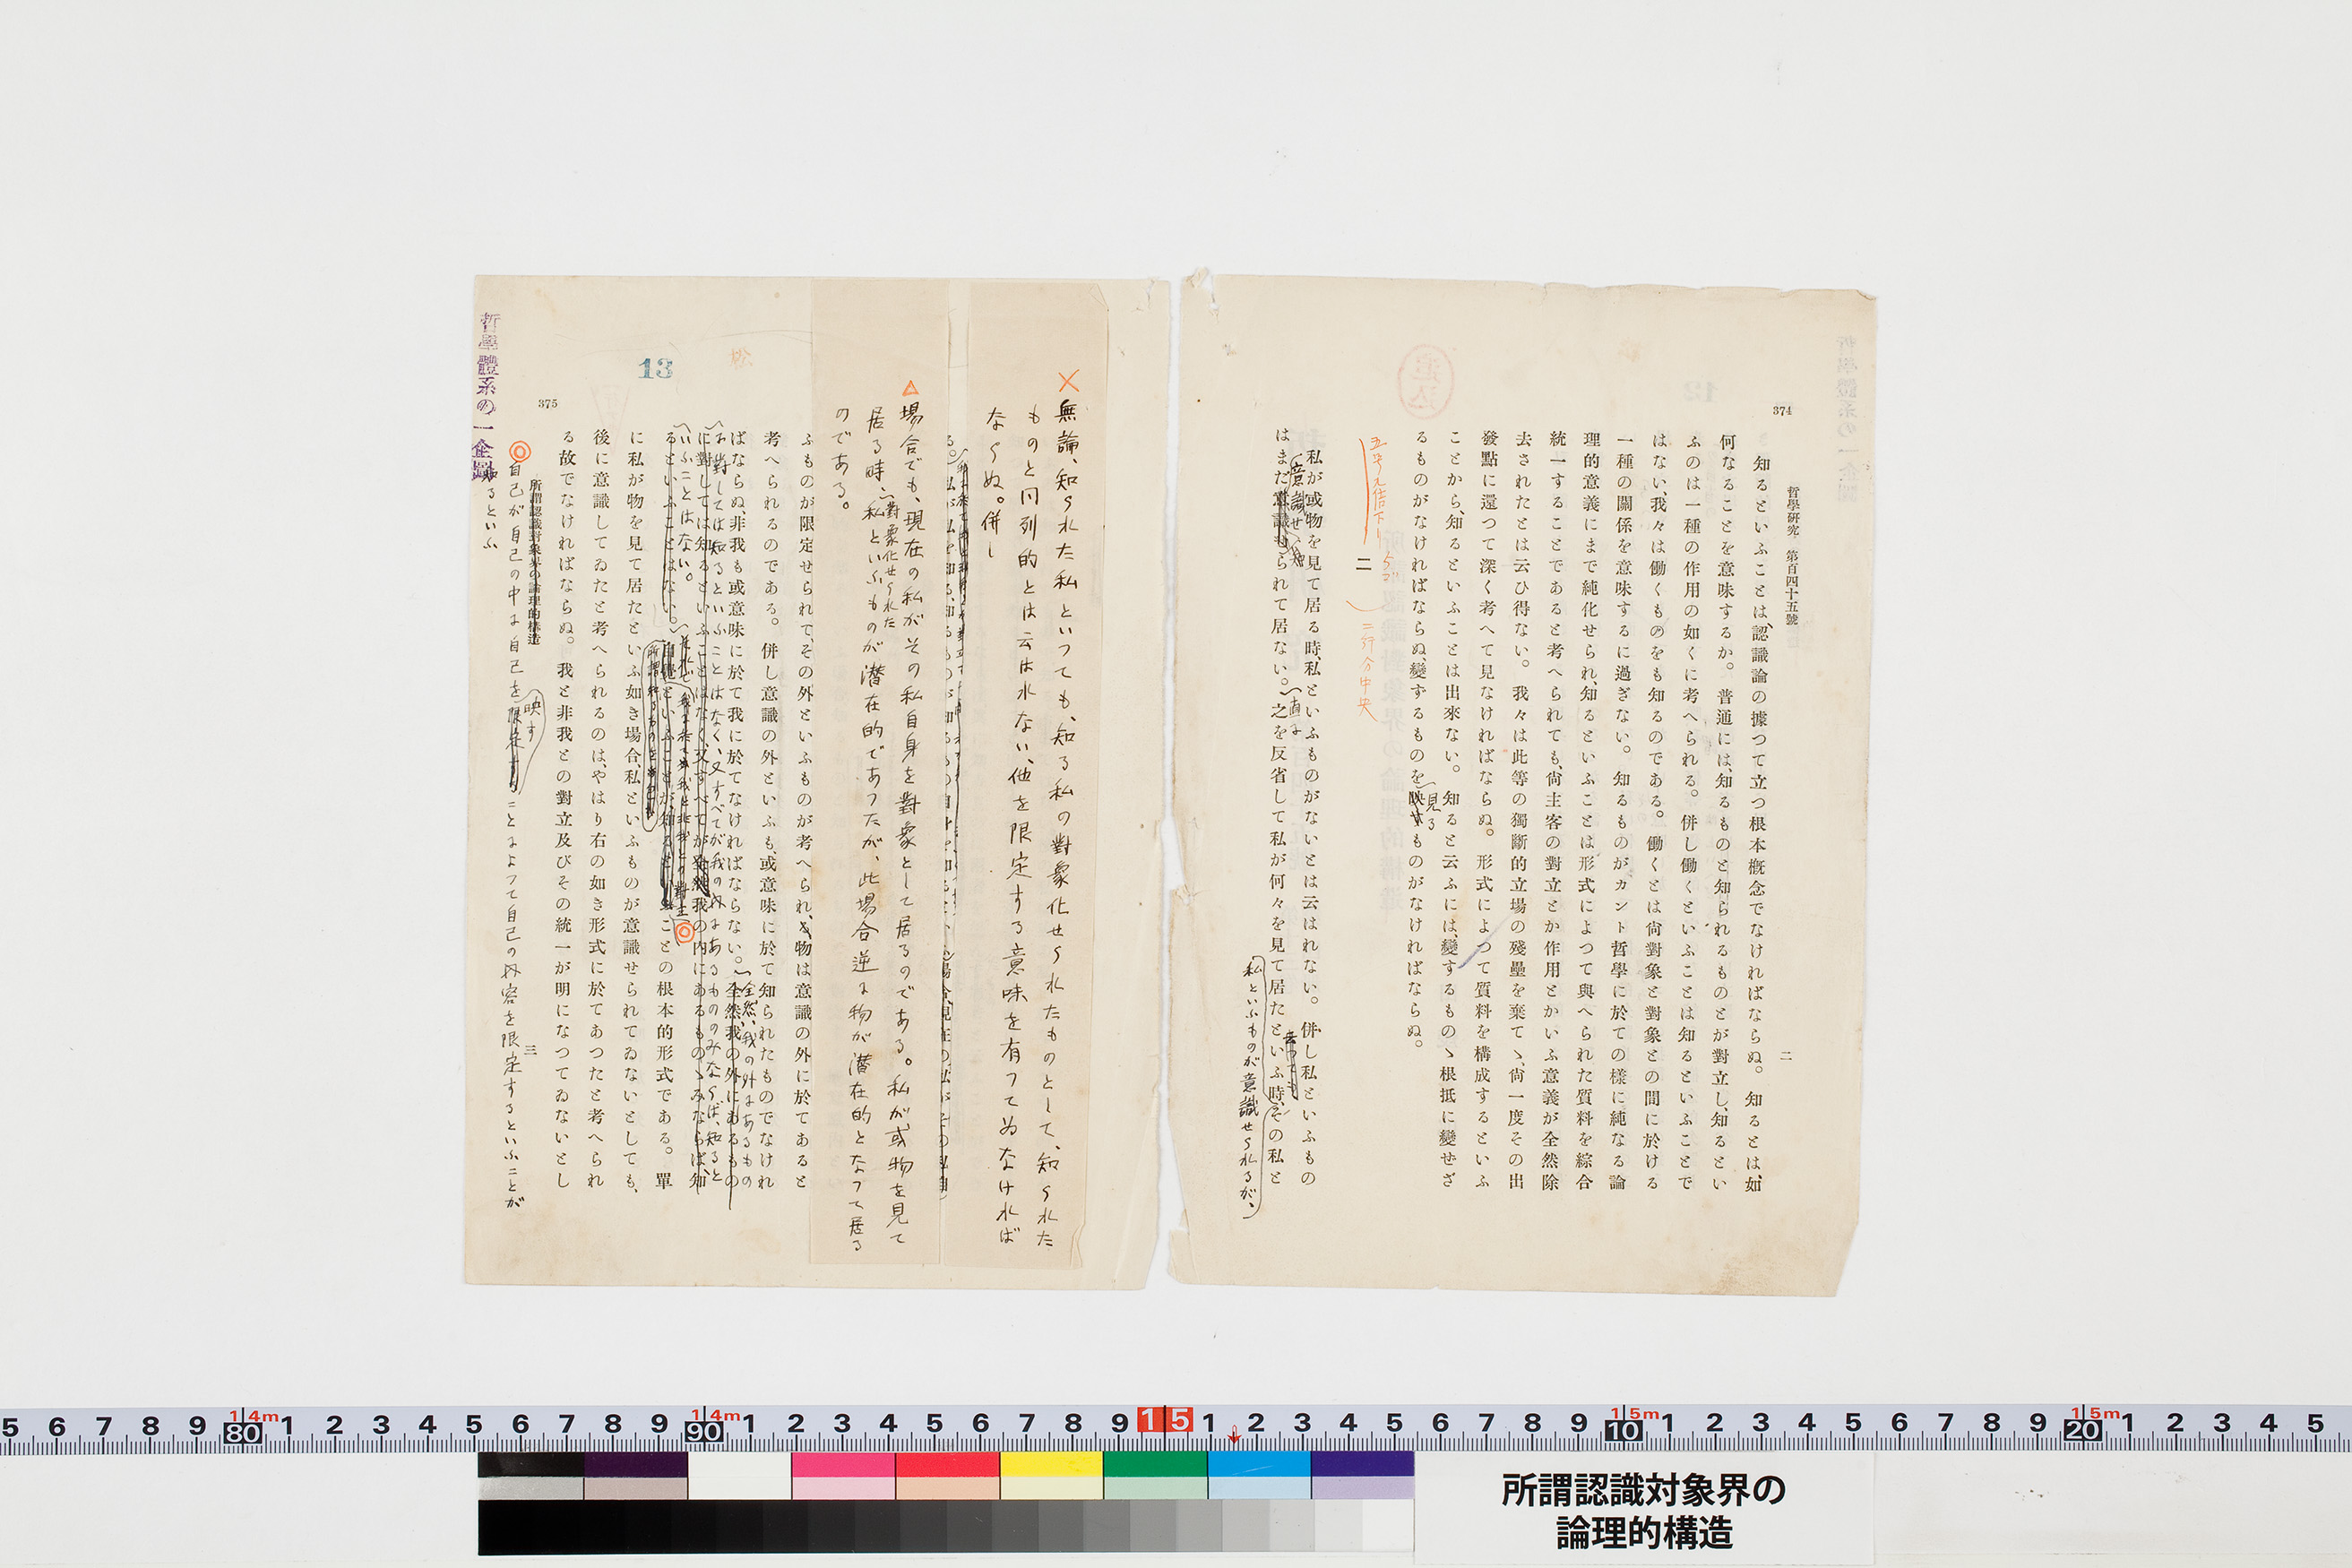 374
哲學研究 第百四十五號
二
知るといふことは、認識論の據つて立つ根本概念でなければならぬ。知るとは、如
何なることを意味するか。普通には、知るものと知られるものとが對立し、知るとい
ふのは一種の作用の如くに考へられる。併し働くといふことは知るといふことで
はない、我々は働くものをも知るのである。働くとは尙對象と對象との間に於ける
一種の關係を意味するに過ぎない。知るものがカント哲學に於ての樣に純なる論
理的意義にまで純化せられ、知るといふことは形式によつて與へられた質料を綜合
統一することであると考へられても、尙主客の對立とか作用とかいふ意義が全然除
去されたとは云ひ得ない。我々は此等の獨斷的立場の殘壘を棄てゝ、尙一度その出
發點に還つて深く考へて見なければならぬ。形式によつて質料を構成するといふ
ことから、知るといふことは出來ない。知ると云ふには、變ずるものゝ根抵に變せざ
るものがなければならぬ、變ずるものを映すものがなければならぬ。
見る
追込
二
二行分中央
私が或物を見て居る時、私といふものがないとは云はれない。併し私といふもの
意識せ
云つても
はまだ意識せられて居ない。之を反省して私が何々を見て居たといふ時、その私と
直に
私といふものが意識せられるが、
×
無論、知られた私といつても、知る私の對象化せられたものとして、知られた
ものと同列的とは云はれない、他を限定する意味を有つてゐなければ
ならぬ。併し
△
場合でも、現在の私がその私自身を對象として居るのである。私が或物を見て
對象化せられた
居る時、私といふものが潜在的であつたが、此場合逆に物が潜在的となつて居る
のである。
ふものが限定せられて、その外といふものが考へられ、物は意識の外に於てあると
考へられるのである。併し意識の外といふも、或意味に於て知られたものでなけれ
全然、我の外にあるもの
ばならぬ、非我も或意味に於て我に於てなければならない。全然我の外にあるもの
に對しては知るといふことはなく、又すべてが我の内にあるもののみならば、知ると
いふことはない。
に對しては知るといふことはなく、又すべてが全然我の内にあるものゝみならば、知
るといふことはない。自覺といふことが、知るといふことの根本的形式である。單
に私が物を見て居たといふ如き場合、私といふものが意識せられてゐないとしても、
後に意識してゐたと考へられるのは、やはり右の如き形式に於てあつたと考へられ
る故でなければならぬ。我と非我との對立及びその統一が明になつてゐないとし
所謂認識對象界の論理的構造
三
375
13
映す
自己が自己の中に自己を限定することによつて自己の内容を限定するといふことが
知るといふ
哲學體系の一企圖
所謂認識対象界の
論理的構造